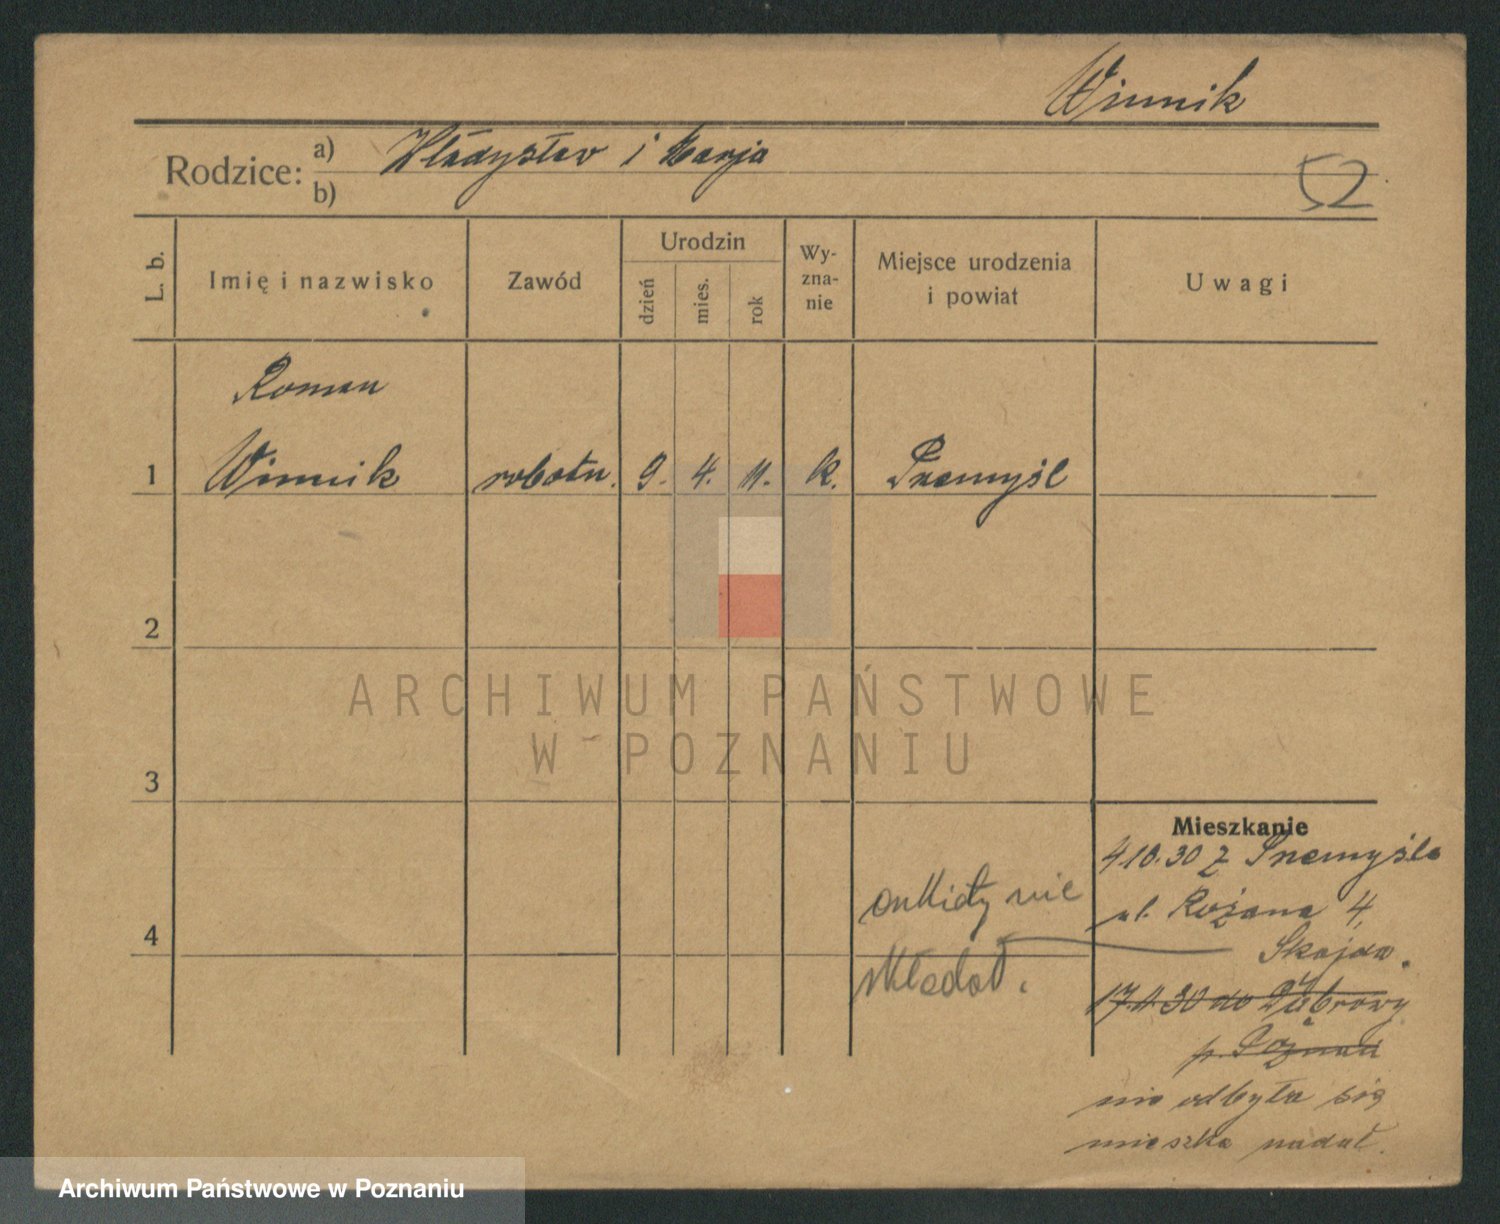 Winnik
Rodzice: a) Władysław i Marja
b)
52
L. b.
Imię i nazwisko
Zawód
Urodzin
dzień
mies.
rok
Wy-
zna-
nie
Miejsce urodzenia
i powiat
Uwagi
Roman
1 Winnik robotn. 9. 4. 11. k. Przemyśl
2
ARCHIWUM PAŃSTWOWE
W POZNANIU
3
Mieszkanie
4.10.30 z Przemyśla
ul. Różana 4,
Skajda.
ankidy nie
składał.
4
17.11.30 do Dąbrowy
p. Poznań
nie odbyła się
mieszka nadal.
Archiwum Państwowe w Poznaniu